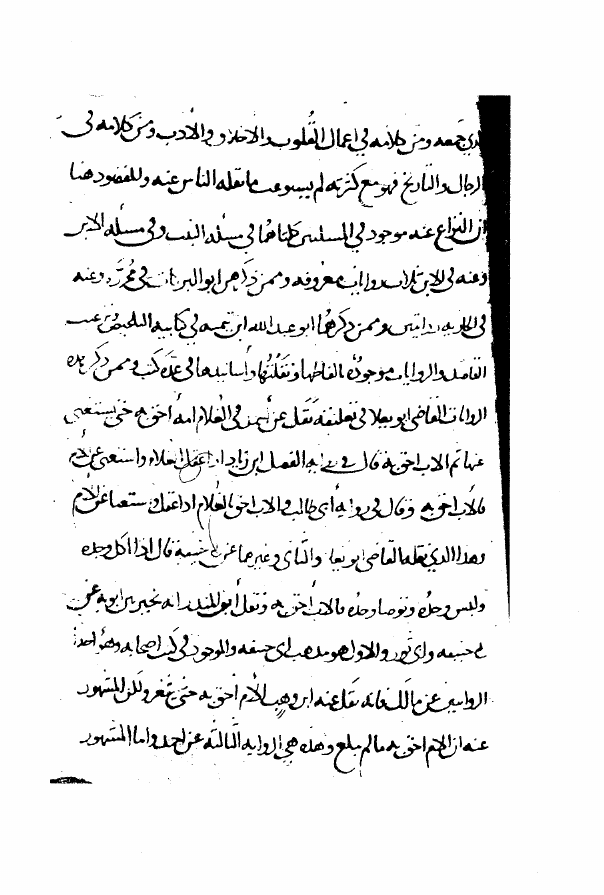 جمعه ومن كلامه في اعمال القلوب والاخلاق والأدب ومن كلامه في
الرجال والتاريخ فهو مع كثرته لم يستوعب ما نقله الناس عنه والمقصود هنا
ان النزاع عنه موجود في المسلتين كلتاهما في مسئله البنت وفي مسئله الابن
وعنه في الابن ثلاث روايات معروفه وممن ذكرهن ابو البركات في محرره وعنه
في الجاريه روايتين وممن ذكرهما ابو عبد الله ابن تيميه في كتابيه التلخيص
والروايات موجودة بالفاظها ونقلتها واسانيدها في عدة كتب وممن ذكر هذه
الروايات القاضي ابو يعلى في تعليقه نقل عن في الغلام امه أحق به حتى يستغني
عنها ثم الاب احق به قال في روايه الفضل ابن زياد اذا عقل الغلام واستغنى عن الأم
فالأب احق به وقال في رواية أبي طالب والاب احق بالغلام اذا عقل واستغنا عن الأم
وهذا الذي نقله القاضي ابو يعلى وغيرهما عن ابي حنيفة قال اذا اكل وحده
ولبس وحده وتوضا وحده فالاب أحق به ونقل أبو المنذر انه يخير بين ابويه عن
ابي حنيفه وابي ثور والاول هو مذهب ابي حنيفه والموجود في كتب اصحابه وهو احدى
الروايتين عن مالك فانه نقل عنه ابن وهب الأم أحق به حتى يثغر ولكن المشهور
عنه ان الام احق به ما لم يبلغ وهذه هي الروايه الثالثه عن احمد واما المشهور